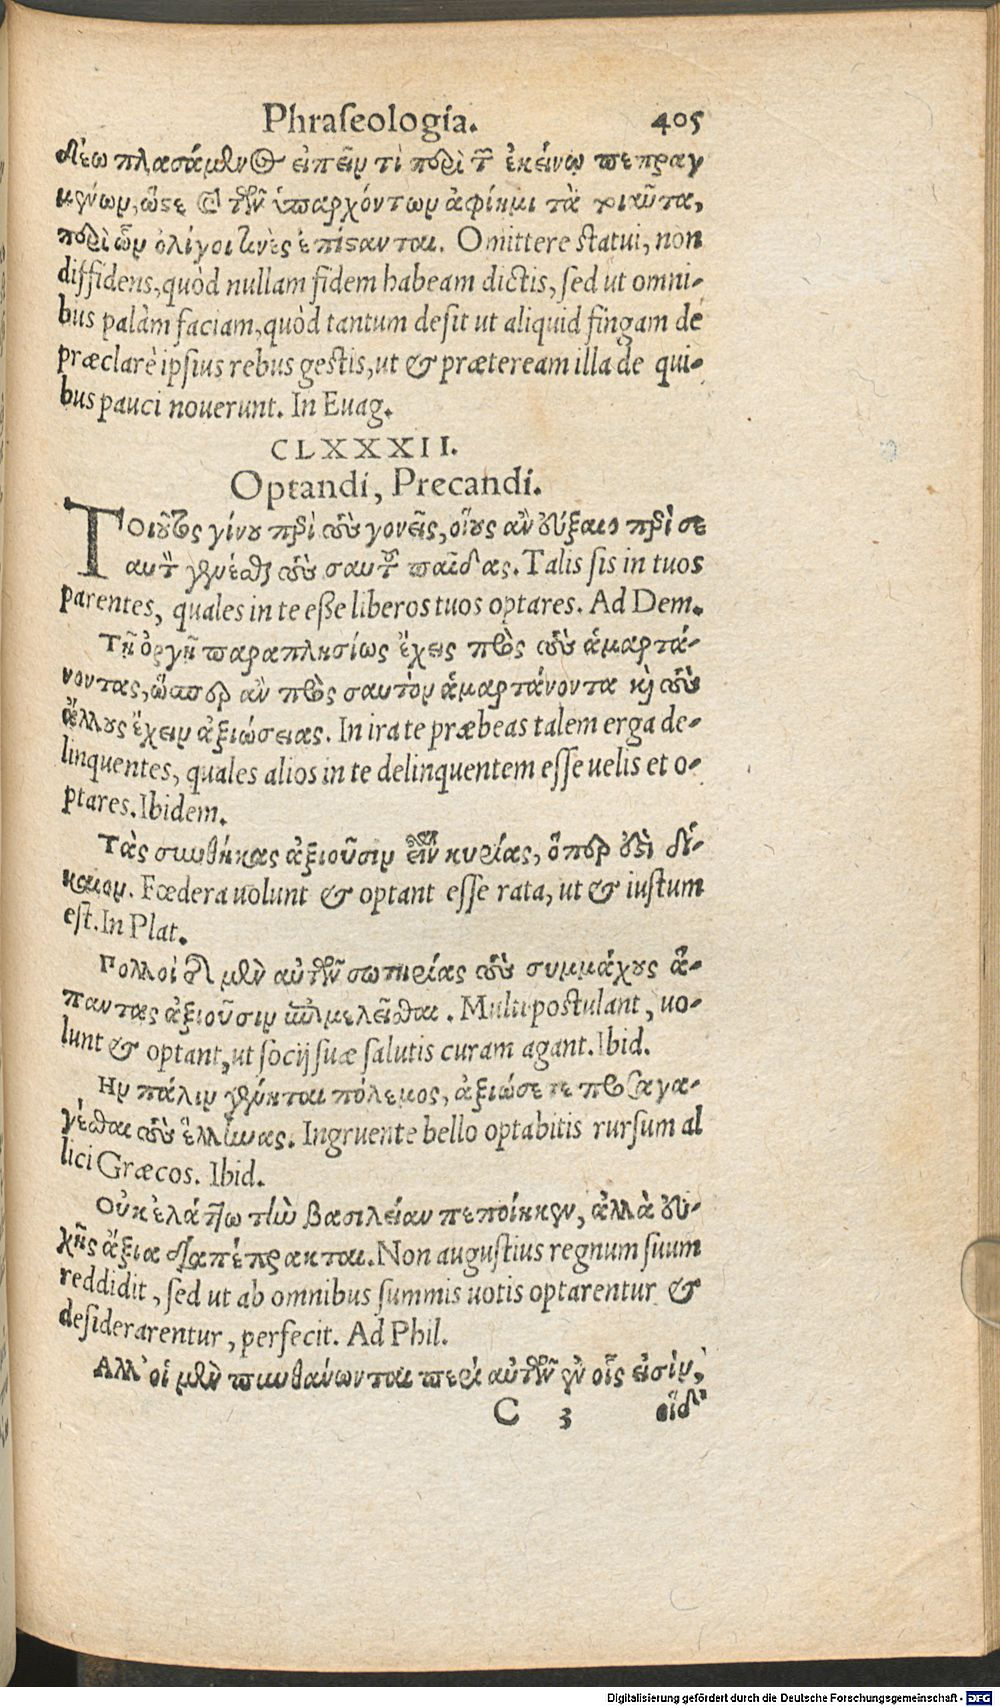 Phraseologia. 405
δέω πλασάμενος εἰπεῖν τὶ περὶ τῶν ἐκείνῳ πεπραγ
μένων, ὥστε καὶ τῶν ὑπαρχόντων ἀφίημι τὰ τοιαῦτα,
περὶ ὧν ὀλίγοι τινὲς ἐπίστανται. Omittere statui, non
diffidens, quòd nullam fidem habeam dictis, sed ut omni-
bus palàm faciam, quòd tantum desit ut aliquid fingam de
præclarè ipsius rebus gestis, ut & præteream illa de qui-
bus pauci nouerunt. In Euag.
CLXXXII.
Optandi, Precandi.
Τοιοῦτος γίνου περὶ τοὺς γονεῖς, οἵους ἂν εὔξαιο περὶ σε
αυτὸν γενέσθαι τοὺς σαυτοῦ παῖδας. Talis sis in tuos
parentes, quales in te eße liberos tuos optares. Ad Dem.
Τῇ ὀργῇ παραπλησίως ἔχεις πρὸς τοὺς ἁμαρτά-
νοντας, ὥσπερ ἂν πρὸς σαυτὸν ἁμαρτάνοντα καὶ τοὺς
ἄλλους ἔχειν ἀξιώσειας. In ira te præbeas talem erga de-
linquentes, quales alios in te delinquentem esse uelis et o-
ptares. Ibidem.
Τὰς συνθήκας ἀξιοῦσιν εἶναι κυρίας, ὅπερ ἐστὶ δί-
καιον. Fœdera uolunt & optant esse rata, ut & iustum
est. In Plat.
Πολλοὶ δὲ μὲν αὐτῶν σωτηρίας τοὺς συμμάχους ἅ-
παντας ἀξιοῦσιν ἐπιμελεῖσθαι. Multi postulant, uo-
lunt & optant, ut socij suæ salutis curam agant. Ibid.
Ην πάλιν γένηται πόλεμος, ἀξιώσετε προσαγα-
γέσθαι τοὺς ἕλληνας. Ingruente bello optabitis rursum al
lici Græcos. Ibid.
Οὐκ ἐλάττω τὴν βασιλείαν πεποίηκεν, ἀλλὰ εὐ-
χῆς ἄξια διαπέπρακται. Non augustius regnum suum
reddidit, sed ut ab omnibus summis uotis optarentur &
desiderarentur, perfecit. Ad Phil.
Αλλ' οἱ μὲν πυνθάνωνται περὶ αὐτῶν ἐν οἷς εἰσὶν,
C 3 οἱ δ'
Digitalisierung gefördert durch die Deutsche Forschungsgemeinschaft - DFG